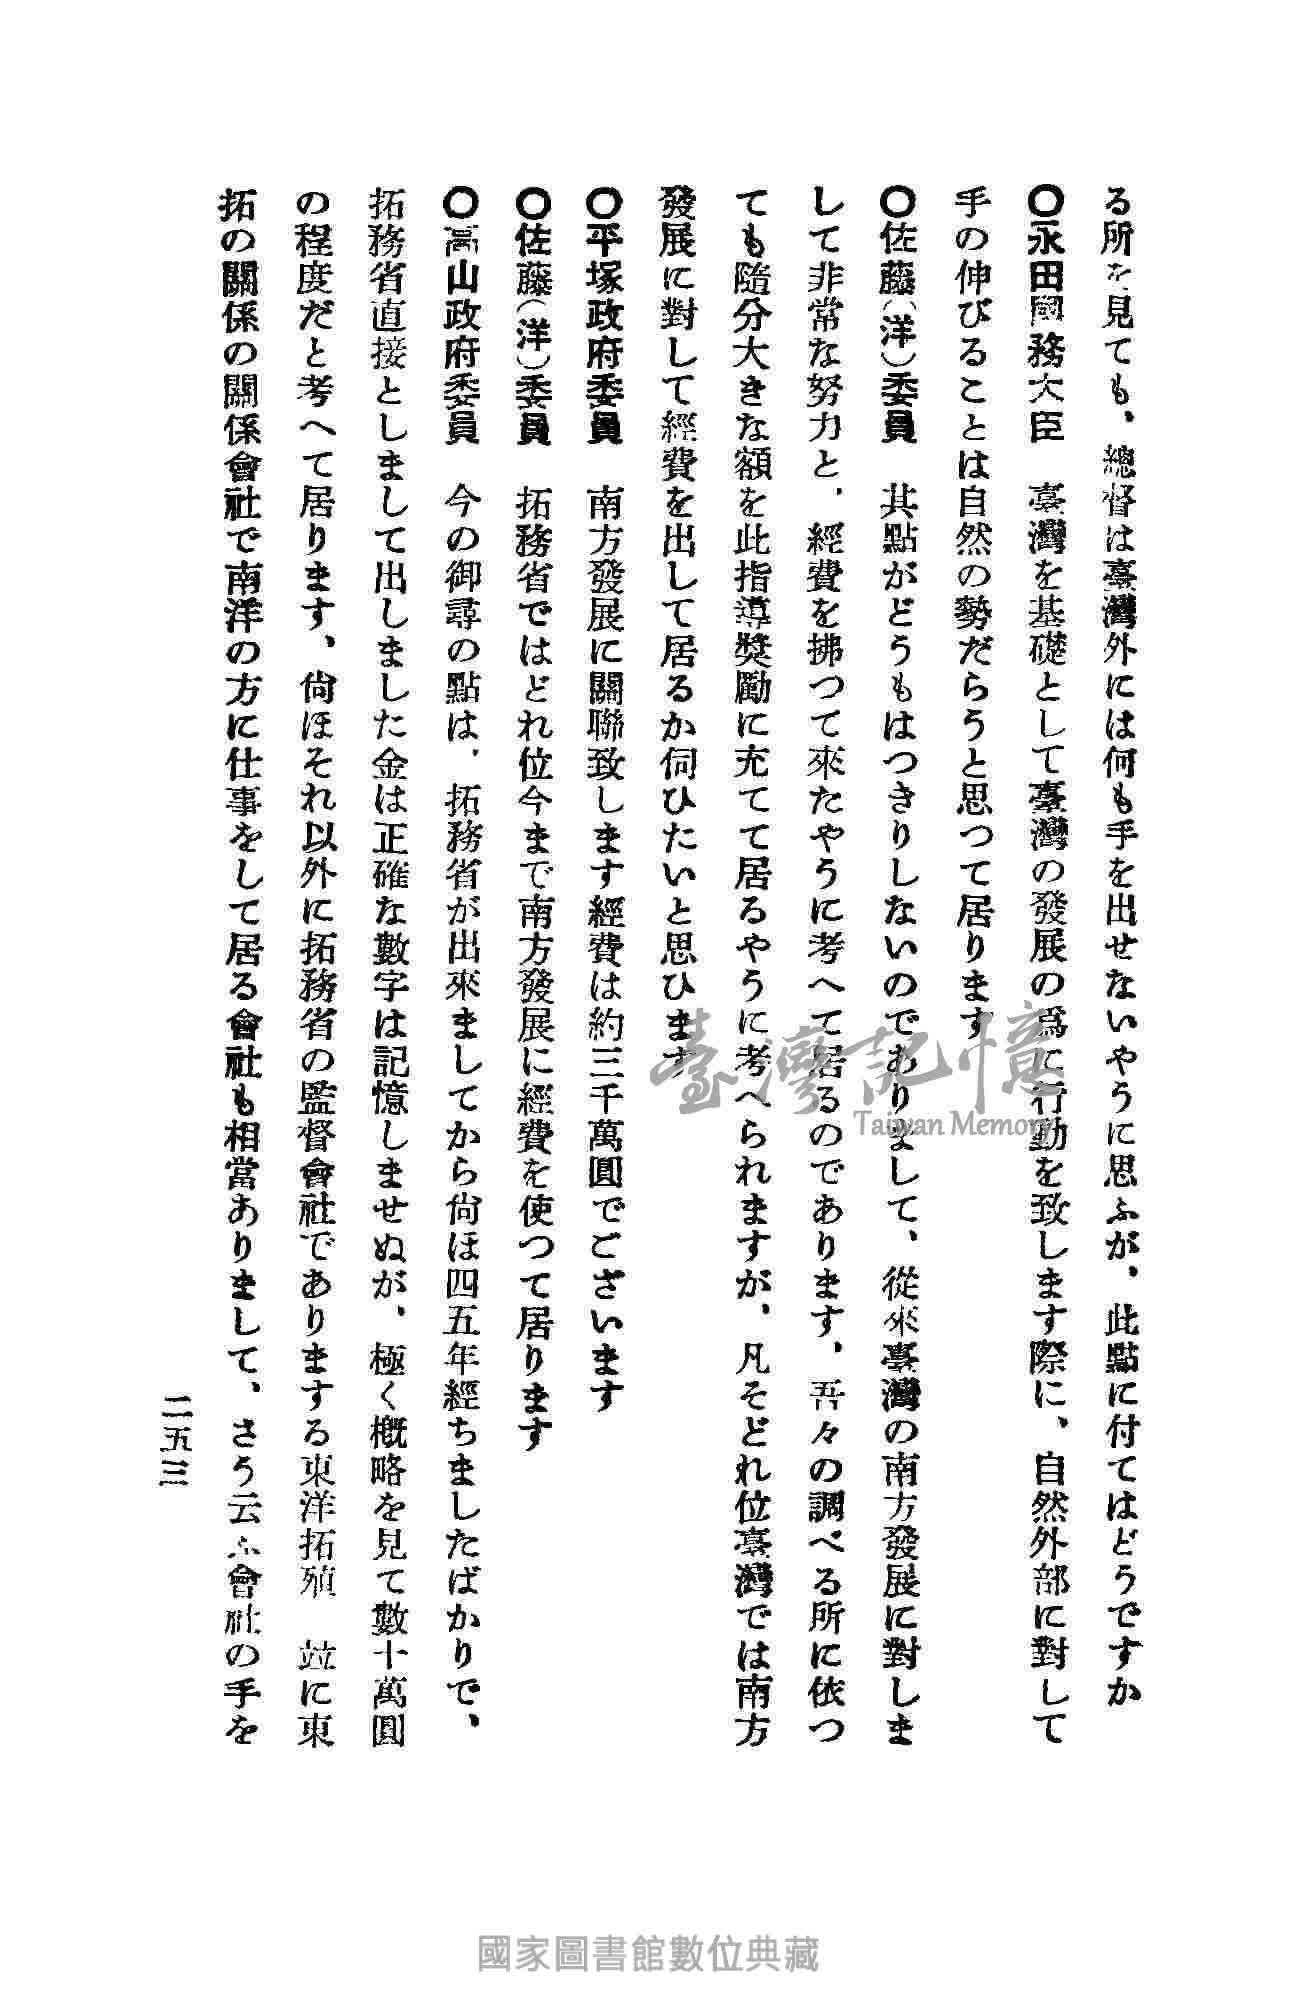 る所を見ても、總督は臺灣外には何も手を出せないやうに思ふが、此點に付てはどうですか
〇永田國務大臣　臺灣を基礎として臺灣の發展の爲に行動を致します際に、自然外部に對して
手の伸びることは自然の勢だらうと思つて居ります
〇佐藤(洋)委員　其點がどうもはつきりしないのでありまして、從來臺灣の南方發展に對しま
して非常な努力と、經費を拂つて來たやうに考へて居るのであります、吾々の調べる所に依つ
ても隨分大きな額を此指導奬勵に充てて居るやうに考へられますが、凡そどれ位臺灣では南方
發展に對して經費を出して居るか伺ひたいと思ひます
〇平塚政府委員　南方發展に關聯致します經費は約三千萬圓でございます
〇佐藤(洋)委員　拓務省ではどれ位今まで南方發展に經費を使つて居ります
〇高山政府委員　今の御尋の點は、拓務省が出來ましてから尙ほ四五年經ちましたばかりで、
拓務省直接としまして出しました金は正確な數字は記憶しませぬが、極く概略を見て數十萬圓
の程度だと考へて居ります、尙ほそれ以外に拓務省の監督會社であります る東洋拓殖　竝に東
拓の關係の關係會社で南洋の方に仕事をして居る會社も相當ありまして、さう云ふ會社の手を
二五三
臺灣記憶
Taiwan Memory
國家圖書館數位典藏